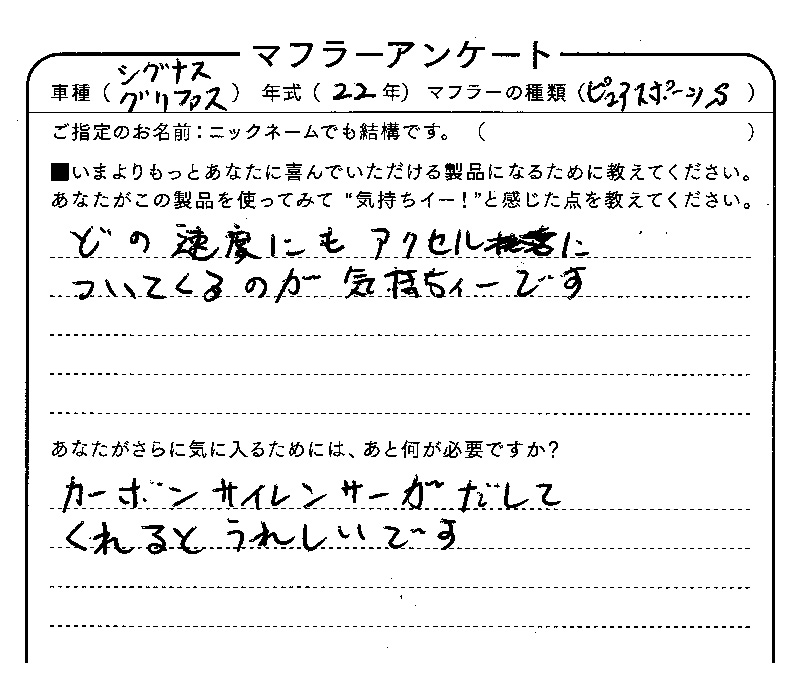 マフラーアンケート
車種(シグナスグリファス) 年式(22年) マフラーの種類(ピュアスポーツS)
ご指定のお名前:ニックネームでも結構です。( )
■いまよりもっとあなたに喜んでいただける製品になるために教えてください。
あなたがこの製品を使ってみて“気持ちイー!”と感じた点を教えてください。
どの速度にもアクセルに
ついてくるのが気持ちィーです
あなたがさらに気に入るためには、あと何が必要ですか?
カーボンサイレンサーがだして
くれるとうれしいです